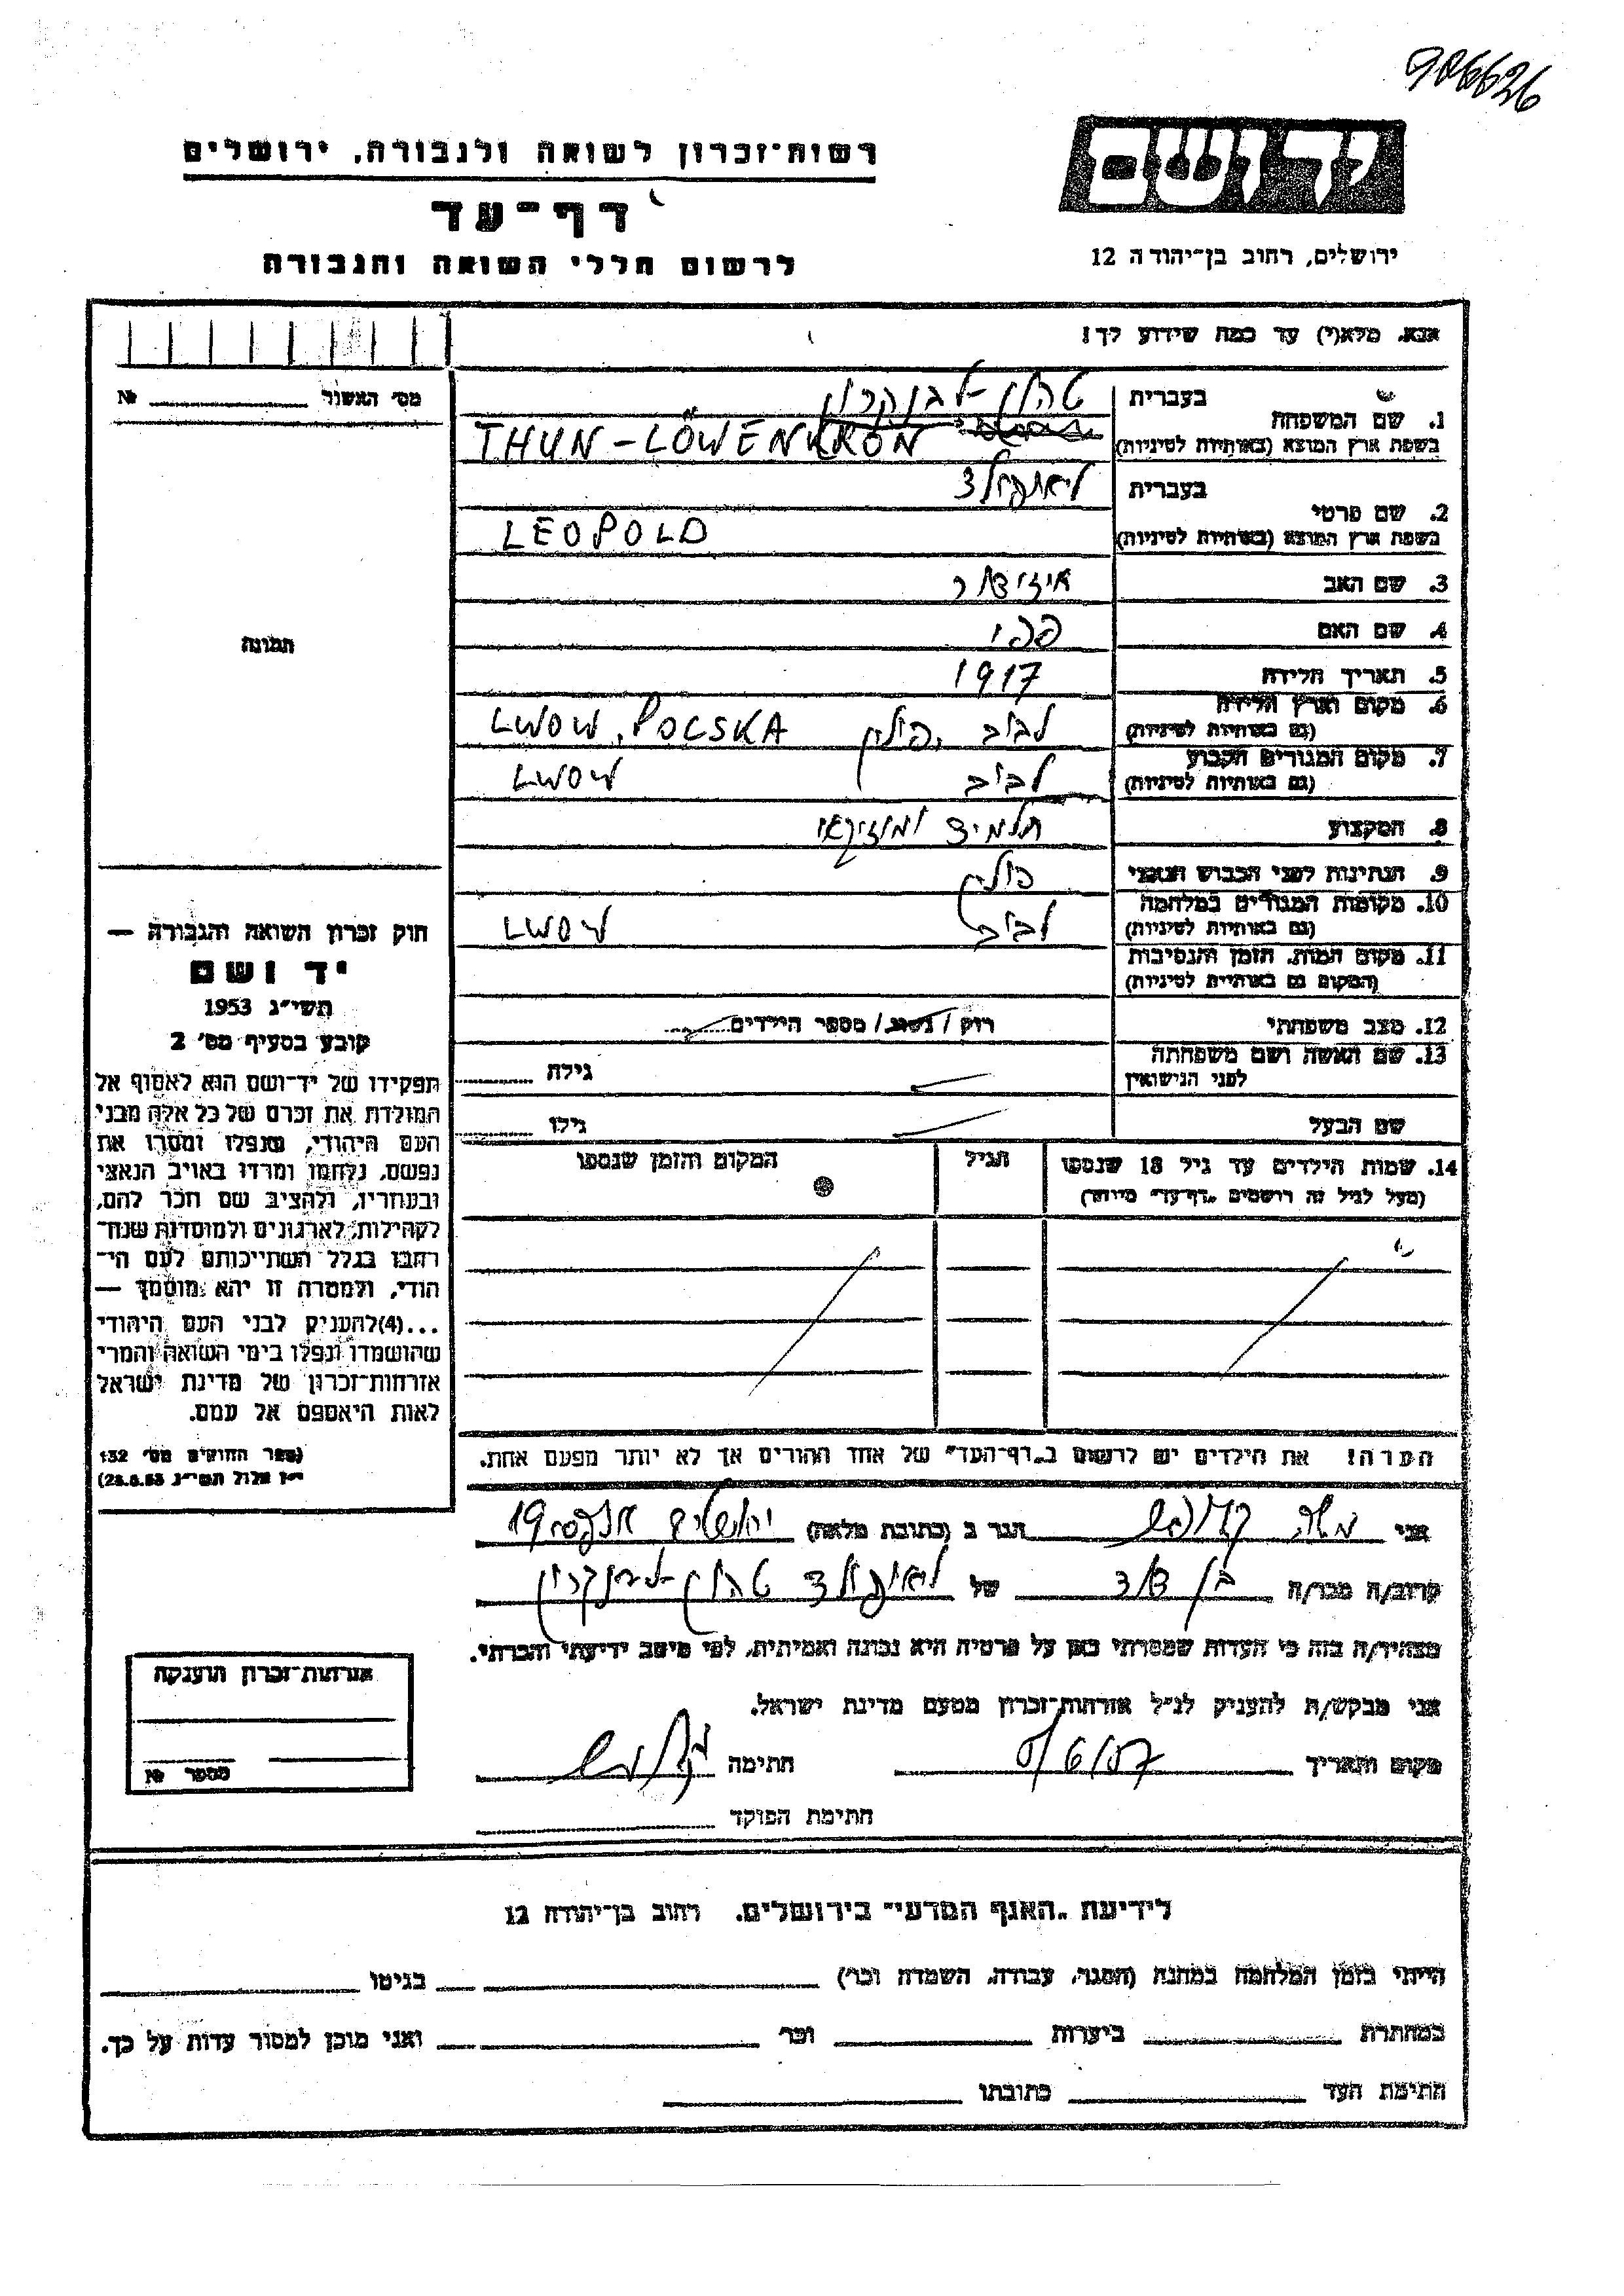 906626
יד ושם
ירושלים, רחוב בן־יהודה 12
רשות־זכרון לשואה ולגבורה, ירושלים
דף־עד
לרשום חללי השואה והגבורה
אנא, מלא(י) עד כמה שידוע לך!
מס׳ האשור № 
תמונה
1. שם המשפחה
בעברית טהון-לבנקרון
בשפת ארץ המוצא (באותיות לטיניות) THUN-LÖWENKRON
2. שם פרטי
בעברית ליאופולד
בשפת ארץ המוצא (באותיות לטיניות) LEOPOLD
3. שם האב איזידור
4. שם האם פפי
5. תאריך הלידה 1917
6. מקום וארץ הלידה
(גם באותיות לטיניות) לבוב, פולין LWOW, POLSKA
7. מקום המגורים הקבוע
(גם באותיות לטיניות) לבוב LWOW
8. המקצוע תלמיד ומוזיקאי
9. הנתינות לפני הכבוש הנאצי פולין
10. מקומות המגורים במלחמה
(גם באותיות לטיניות) לבוב LWOW
11. מקום המות, הזמן והנסיבות
(המקום גם באותיות לטיניות)
12. מצב משפחתי רוק / נשוי / מספר הילדים
13. שם האשה ושם משפחתה
לפני הנישואין גילה
שם הבעל גילו
14. שמות הילדים עד גיל 18 שנספו הגיל המקום והזמן שנספו
(מעל לגיל זה רושמים „דף־עד״ מיוחד)
חוק זכרון השואה והגבורה —
יד ושם
תשי״ג 1953
קובע בסעיף מס׳ 2
תפקידו של יד־ושם הוא לאסוף אל
המולדת את זכרם של כל אלה מבני
העם היהודי, שנפלו ומסרו את
נפשם, נלחמו ומרדו באויב הנאצי
ובעוזריו, ולהציב שם וזכר להם,
לקהילות, לארגונים ולמוסדות שנח־
רבו בגלל השתייכותם לעם הי־
הודי, ולמטרה זו יהא מוסמך —
...(4) להעניק לבני העם היהודי
שהושמדו ונפלו בימי השואה והמרי
אזרחות־זכרון של מדינת ישראל
לאות היאספם אל עמם.
(ספר החוקים מס׳ 132
י״ז אלול תשי״ג 28.8.53)
הערה! את הילדים יש לרשום ב„דף־העד״ של אחד ההורים אך לא יותר מפעם אחת.
אני משה הגר ב (כתובת מלאה) ירושלים 19
קרוב/ה מכר/ה בן דוד של ליאופולד טהון-לבנקרון
מצהיר/ה בזה כי העדות שמסרתי כאן על פרטיה היא נכונה ואמיתית, לפי מיטב ידיעתי והכרתי.
אני מבקש/ת להעניק לנ״ל אזרחות־זכרון מטעם מדינת ישראל.
מקום ותאריך חתימה
חתימת הפוקד
אזרחות־זכרון הוענקה
מספר №
לידיעת „האגף המדעי״ בירושלים, רחוב בן־יהודה 12
הייתי בזמן המלחמה במחנה (הסגר, עבודה, השמדה וכו׳) בגיטו
במחתרת ביערות וכו׳ ואני מוכן למסור עדות על כך.
חתימת העד כתובתו